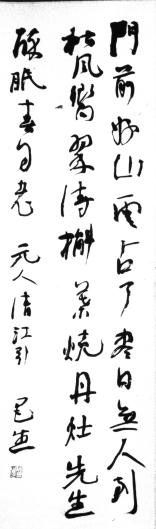 門前好山雲占了盡日無人到
松風響翠濤槲葉燒丹灶先生
醉眠春自老 元人清江引